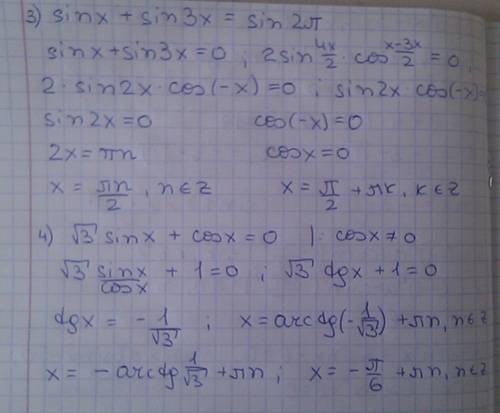 3) sinx + sin3x = sin 2π
sinx + sin3x = 0 ; 2sin 4x/2 · cos x-3x/2 = 0 ;
2 · sin2x · cos(-x) = 0 ; sin2x · cos(-x)=
sin2x = 0 cos(-x) = 0
2x = πn cosx = 0
x = πn/2 , n∈z x = π/2 + πk, k∈z
4) √3 sinx + cosx = 0 | : cosx ≠ 0
√3 sinx/cosx + 1 = 0 ; √3 tgx + 1 = 0
tgx = - 1/√3 ; x = arctg(-1/√3) + πn, n∈z
x = - arctg 1/√3 + πn ; x = - π/6 + πn, n∈z